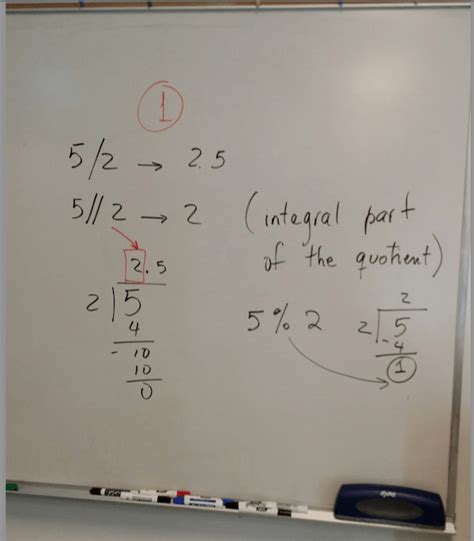 1
5/2 → 2.5
5//2 → 2 (integral part
of the quotient)
2.5
2 5
4
- 10
10
0
5 % 2
2
2 5
-4
1
EXPO